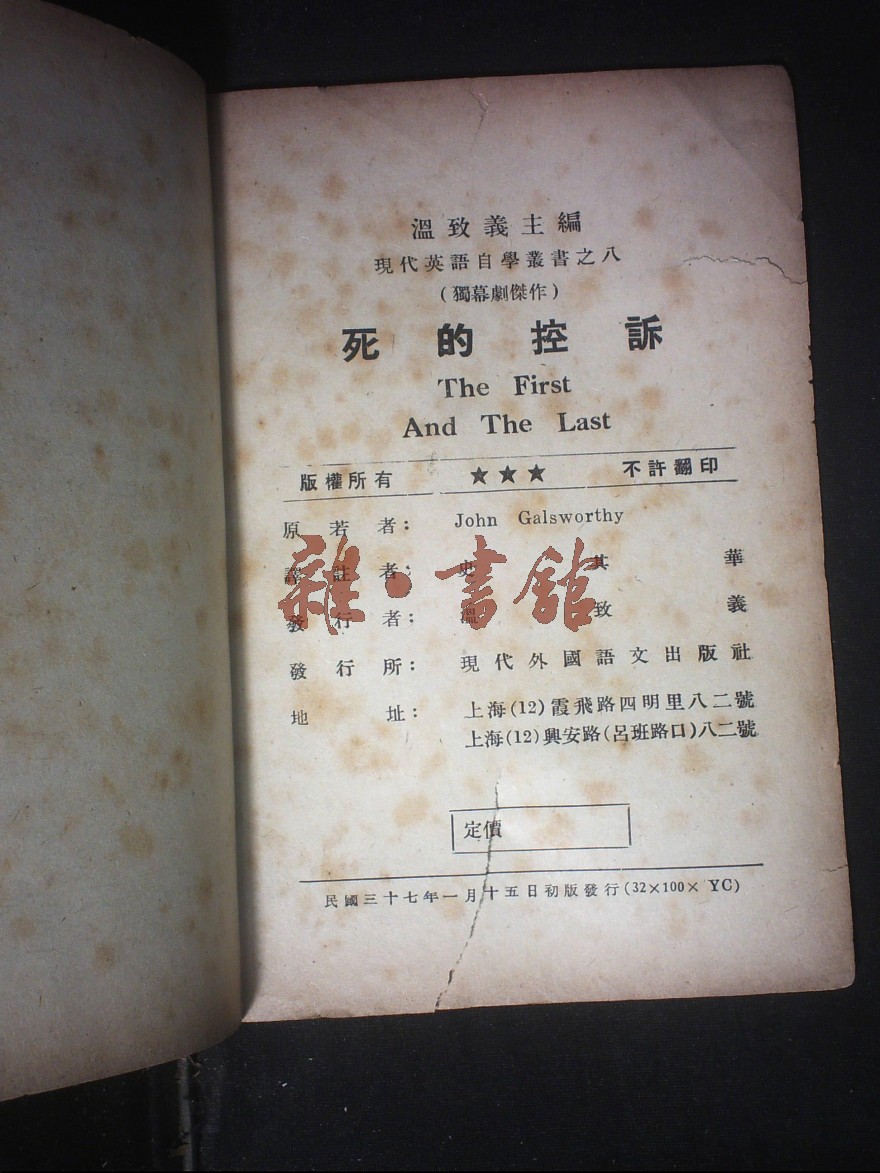 溫致義主編
現代英語自學叢書之八
(獨幕劇傑作)
死的控訴
The First
And The Last
版權所有 ★★★ 不許翻印
原若者: John Galsworthy
譯註者: 史其華
發行者: 溫致義
發行所: 現代外國語文出版社
地址: 上海(12)霞飛路四明里八二號
上海(12)興安路(呂班路口)八二號
定價
民國三十七年一月十五日初版發行(32×100×YC)
雜·書館